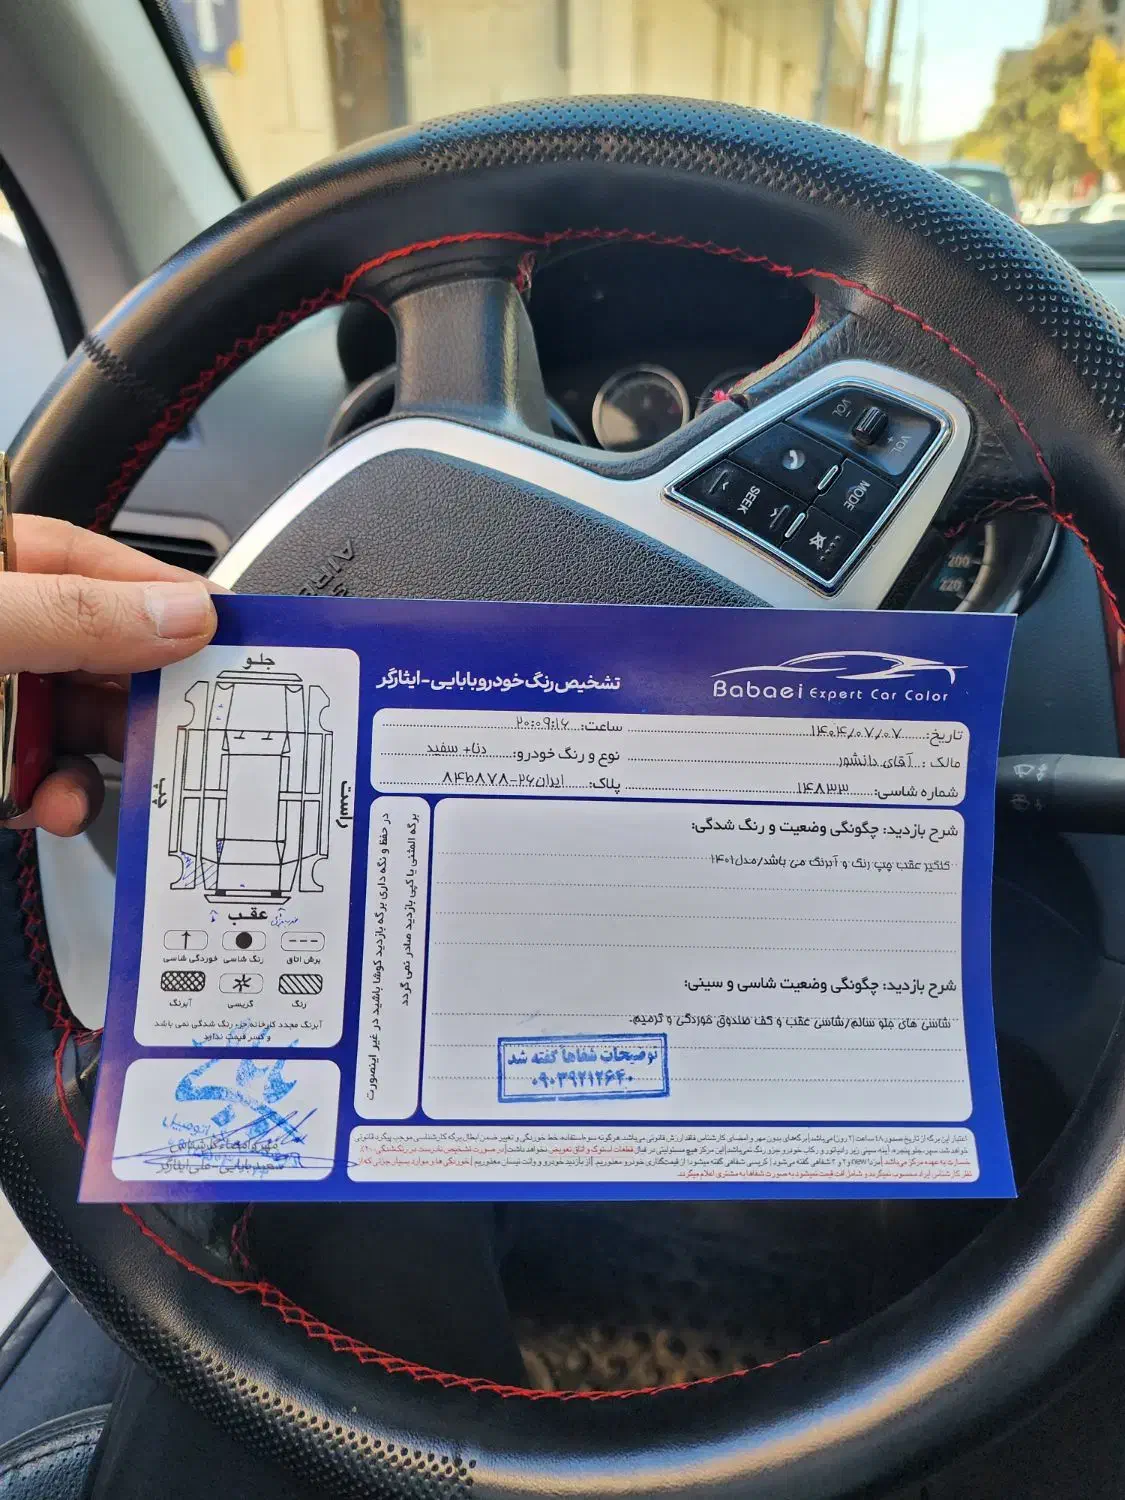 VOL + VOL
MODE
SEEK
200
220
تشخیص رنگ خودرو بابایی-ایثارگر
Babaei Expert Car Color
تاریخ: ۱۴۰۴/۰۷/۰۷
ساعت: ۲۰:۰۹:۱۶
مالک: آقای دانشور
نوع و رنگ خودرو: دنا+ سفید
شماره شاسی: ۱۴۸۳۳
پلاک: ایران۲۶-۸۷۸ط۸۴
شرح بازدید: چگونگی وضعیت و رنگ شدگی:
گلگیر عقب چپ رنگ و آبرنگ می باشد/مدل۱۴۰۱
شرح بازدید: چگونگی وضعیت شاسی و سینی:
شاسی های جلو سالم/شاسی عقب و کف صندوق خوردگی و ترمیم.
توضیحات شفاها گفته شد
۰۹۰۳۹۲۱۲۶۴۰
در حفظ و نگه داری برگه بازدید کوشا باشید در غیر اینصورت
برگه المثنی یا کپی بازدید صادر نمی گردد
جلو
چپ
راست
عقب
برش اتاق
رنگ شاسی
خوردگی شاسی
رنگ
گریسی
آبرنگ
آبرنگ مجدد کارخانه جزء رنگ شدگی نمی باشد
و کسر قیمت ندارد
مهر و امضاء کارشناس
سعید بابایی-علی ایثارگر